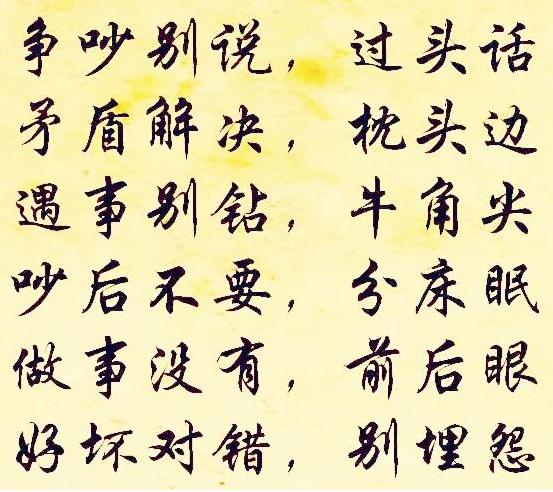 争吵别说，过头话
矛盾解决，枕头边
遇事别钻，牛角尖
吵后不要，分床眠
做事没有，前后眼
好坏对错，别埋怨